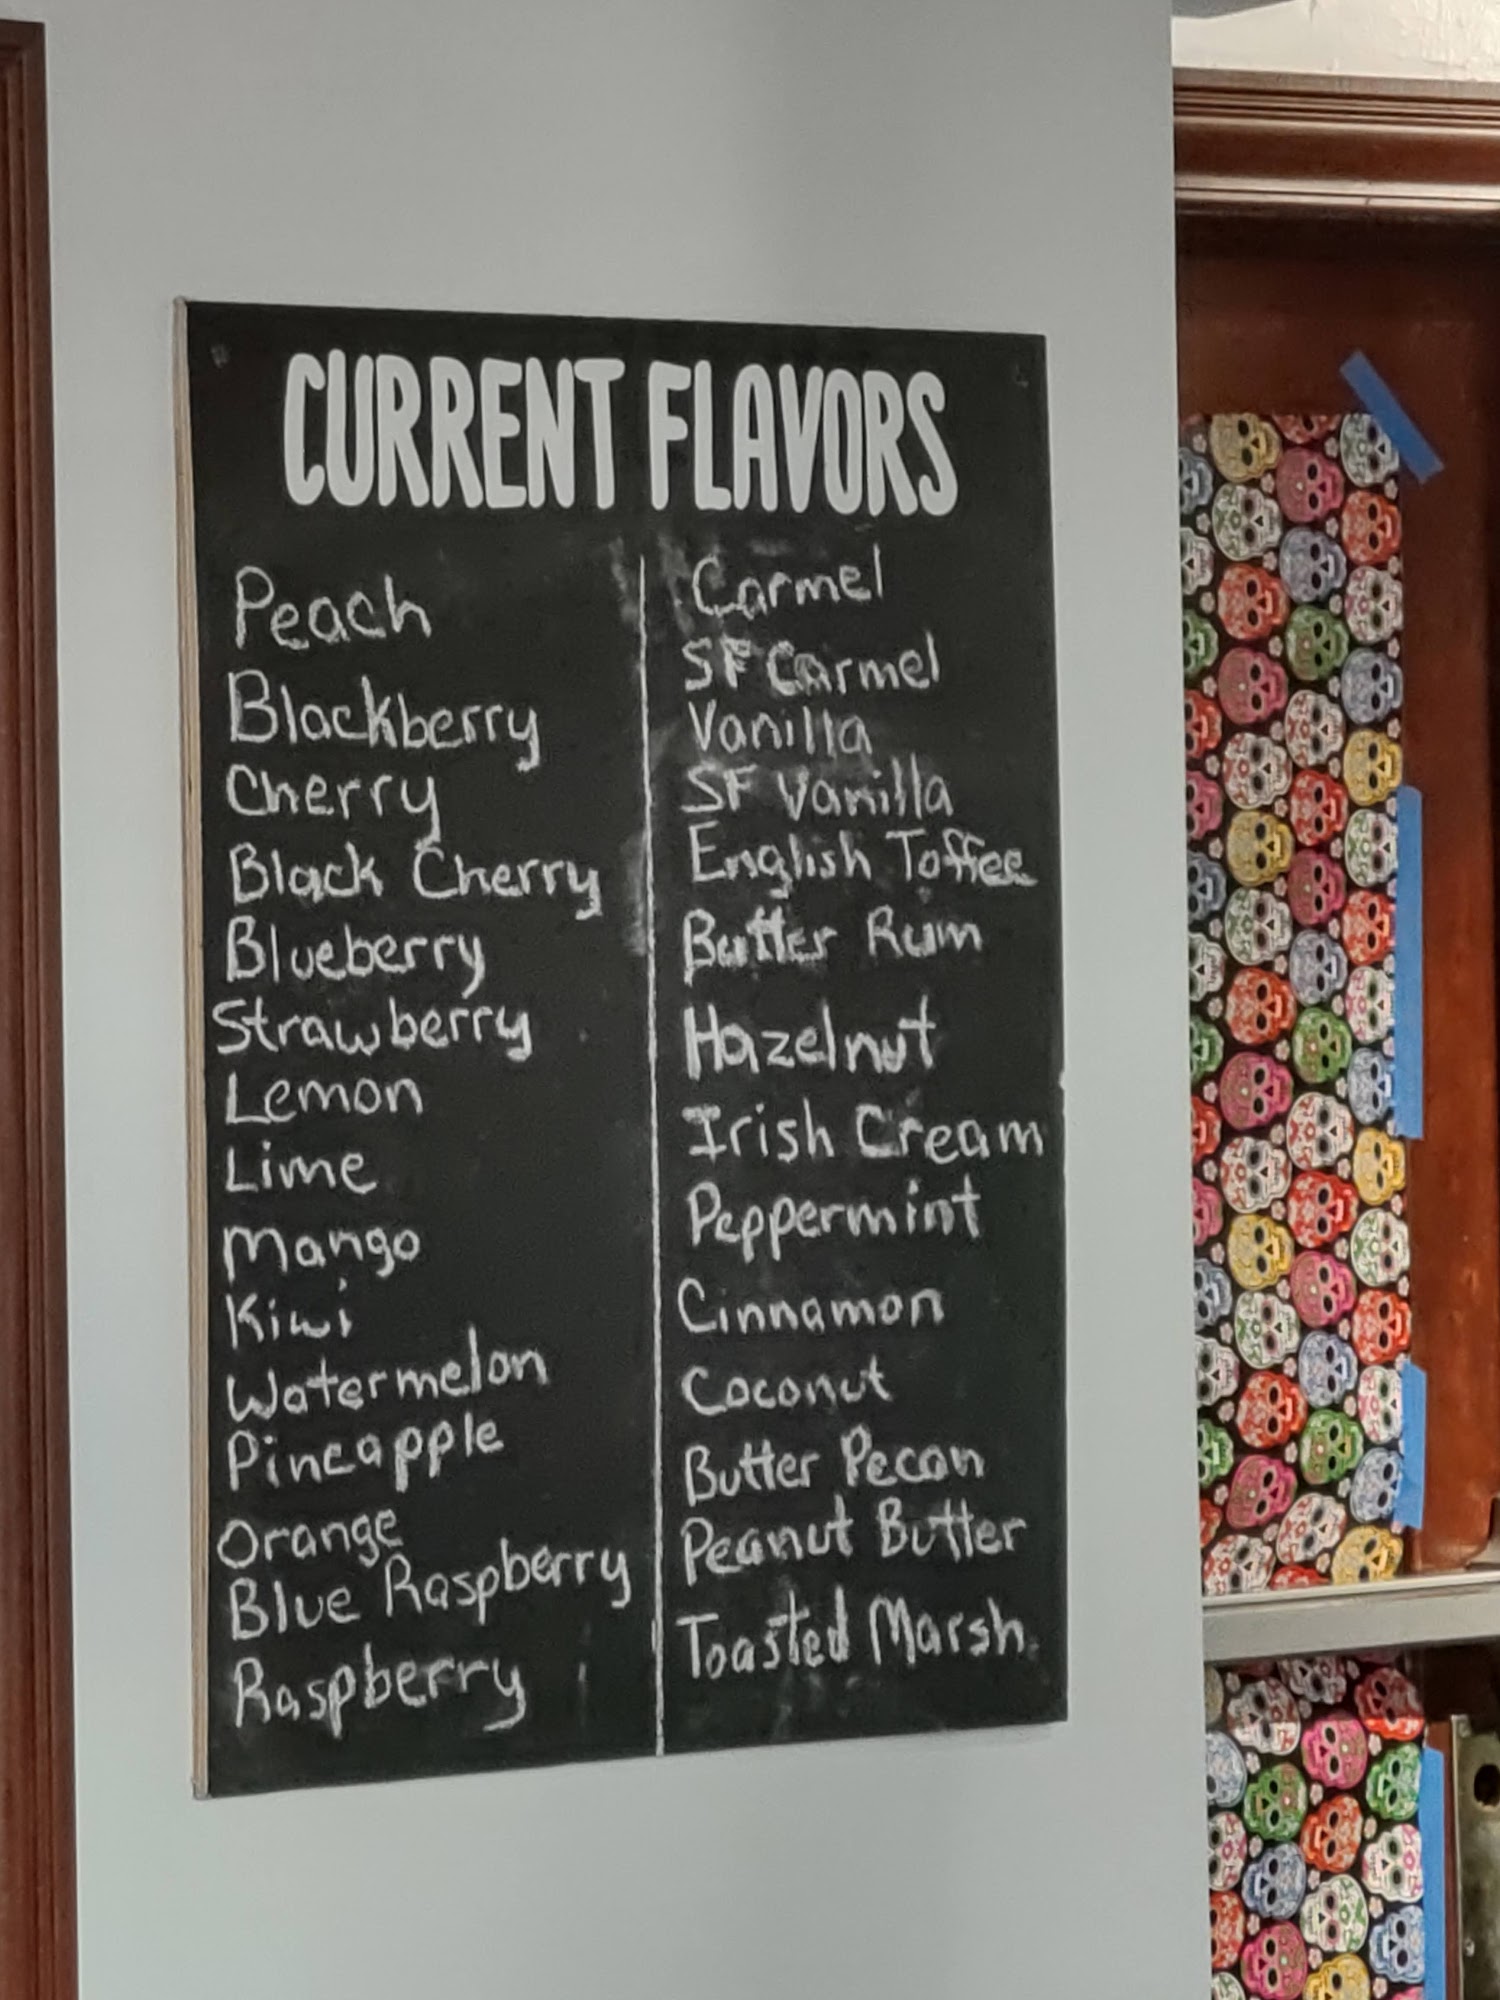 CURRENT FLAVORS
Peach
Blackberry
Cherry
Black Cherry
Blueberry
Strawberry
Lemon
Lime
Mango
Kiwi
Watermelon
Pineapple
Orange
Blue Raspberry
Raspberry
Carmel
SF Carmel
Vanilla
SF Vanilla
English Toffee
Butter Rum
Hazelnut
Irish Cream
Peppermint
Cinnamon
Coconut
Butter Pecan
Peanut Butter
Toasted Marsh.